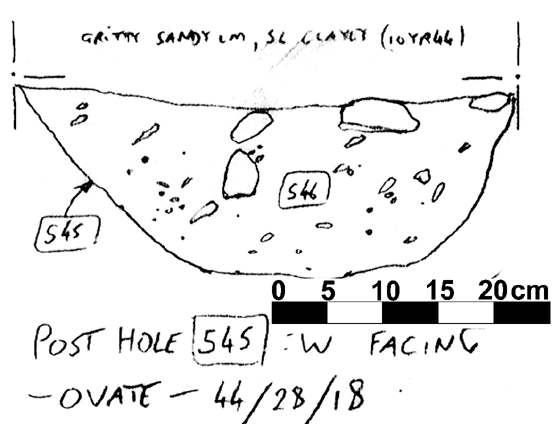 GRITTY SANDY LM, SL CLAYEY (10YR44)
546
545
0 5 10 15 20 cm
POST HOLE 545 : W FACING
- OVATE - 44/28/18